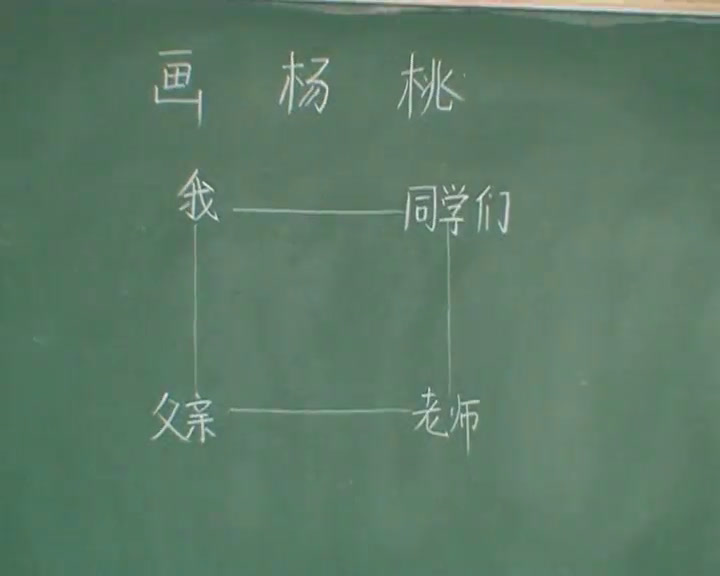 画 杨 桃
我 同学们
父亲 老师